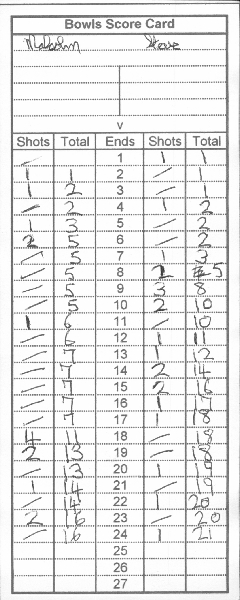 Bowls Score Card
Malcolm Steve
v
Shots Total Ends Shots Total
- 1 1 1
1 1 2 - 1
1 2 3 - 1
- 2 4 1 2
1 3 5 - 2
2 5 6 - 2
- 5 7 1 3
- 5 8 2 5
- 5 9 3 8
- 5 10 2 10
1 6 11 - 10
- 6 12 1 11
- 7 13 1 12
- 7 14 2 14
- 7 15 2 16
- 7 16 1 17
- 7 17 1 18
4 11 18 - 18
2 13 19 - 18
- 13 20 1 19
1 14 21 - 19
- 14 22 1 20
2 16 23 - 20
- 16 24 1 21
25
26
27